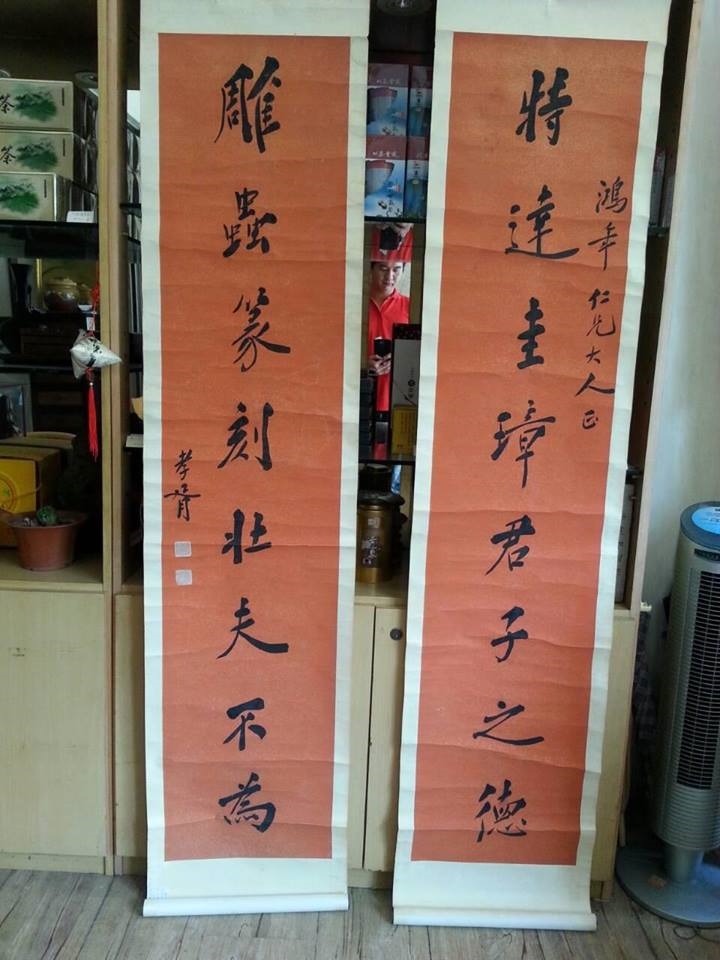 特達圭璋君子之德
鴻年仁兄大人正
雕蟲篆刻壯夫不為
孝胥
茶
茶